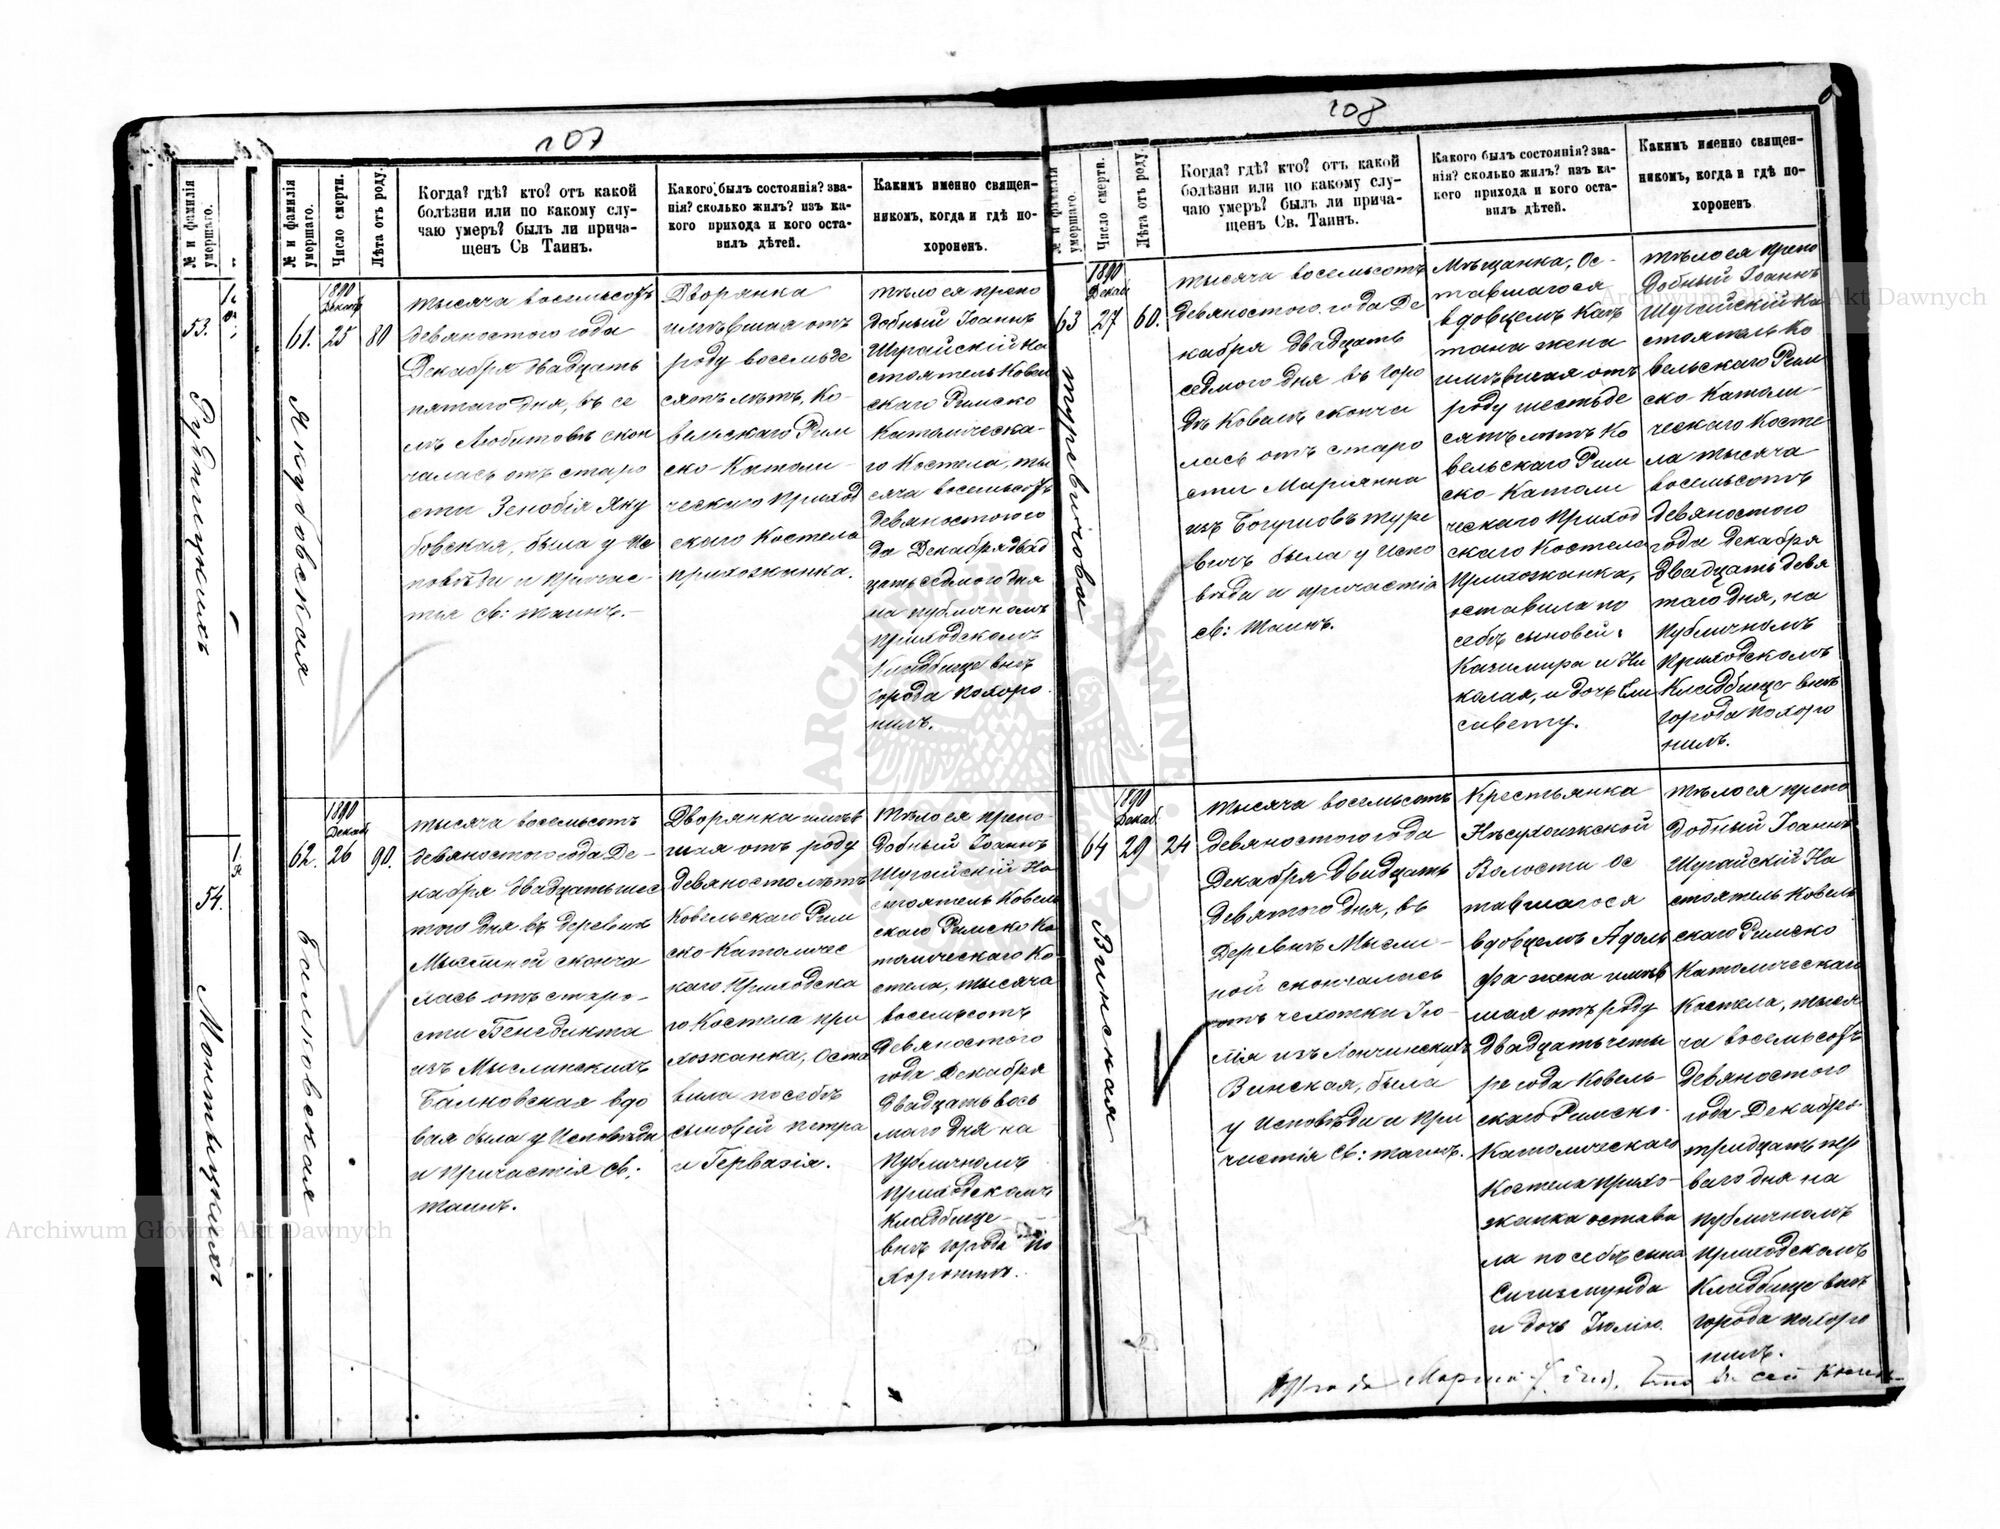 107
№ и фамилія умершаго.
53.
Рубницкихъ
54.
Монтвицкихъ
№ и фамилія умершаго.
Число смерти.
Лѣта отъ роду.
Когда? гдѣ? кто? отъ какой
болѣзни или по какому слу-
чаю умеръ? былъ ли прича-
щенъ Св Таинъ.
Какого былъ состоянія? зва-
нія? сколько жилъ? изъ ка-
кого прихода и кого оста-
вилъ дѣтей.
Какимъ именно священ-
никомъ, когда и гдѣ по-
хороненъ.
61.
Якубовская
1890
Декаб
25
80
тысяча восемьсотъ
девяностого года
Декабря двадцать
пятаго дня, въ се
лѣ Любитовѣ скон
чалась отъ старо
сти Зенобія Яку
бовская, была у Ис
повѣди и причас-
тія Св: таинъ.-
Дворянка
имѣвшая отъ
роду восемьде
сятъ лѣтъ, Ко-
вельскаго Рим
ско-Католи-
ческаго Приход
скаго Костела
прихожанка.
тѣло ея препо
добный Іоаннъ
Шугайскій На
стоятель Ковел
скаго Римско
Католическа-
го Костела, ты
сяча восемьсотъ
девяностого го
да Декабря двад
цать седмого дня
на публичномъ
приходскомъ
Кладбище внѣ
города похоро
нилъ.
62.
Балковская
1890
Декаб
26
90.
тысяча восемьсотъ
девяностого года Де-
кабря двадцать шес
того дня въ деревнѣ
Мыслиной сконча
лась отъ старо-
сти Бенедикта
изъ Мыслинскихъ
Балковская вдо
вая была у Исповѣди
и Причастія Св:
таинъ.
Дворянка имѣв
шая отъ роду
девяносто лѣтъ
Ковельскаго Рим
ско-Католичес
каго Приходска
го Костела при
хожанка, Оста
вила по себѣ
сыновей Петра
и Гервазія.
тѣло ея препо-
добный Іоаннъ
Шугайскій На
стоятель Ковель
скаго Римско Ка
толическаго Ко
стела, тысяча
восемьсотъ
девяностого
года Декабря
двадцать вось
маго дня на
публичномъ
приходскомъ
кладбище-
внѣ города по
хоронилъ.
108
№ и фамилія умершаго.
Число смерти.
Лѣта отъ роду.
Когда? гдѣ? кто? отъ какой
болѣзни или по какому слу-
чаю умеръ? былъ ли прича-
щенъ Св. Таинъ.
Какого былъ состоянія? зва-
нія? сколько жилъ? изъ ка-
кого прихода и кого оста-
вилъ дѣтей.
Какимъ именно священ-
никомъ, когда и гдѣ по-
хороненъ
63
Туревичова
1890
Декаб
27
60.
тысяча восемьсотъ
девяностого года Де
кабря двадцать
седмого дня въ горо
дѣ Ковелѣ сконча
лась отъ старо
сти Маріянна
изъ Богушовъ Туре
вичъ была у Испо
вѣди и причастія
Св: таинъ.
Мѣщанка, Ос-
тавшагося
вдовцемъ Каэ
тана жена
имѣвшая отъ
роду шестьде
сятъ лѣтъ Ко
вельскаго Рим
ско-Католи
ческаго Приход
скаго Костела
прихожанка,
оставила по
себѣ сыновей:
Казимира и Ни
колая, и дочь Ели
савету.
тѣло ея препо
добный Іоаннъ
Шугайскій На
стоятель Ко
вельскаго Рим
ско-Католи-
ческаго Косте
ла тысяча
восемьсотъ
девяностого
года Декабря
двадцать девя
того дня, на
публичномъ
приходскомъ
Кладбище внѣ
города похоро
нилъ.
64
Винская
1890
Декаб.
29
24
тысяча восемьсотъ
девяностого года
Декабря двадцать
девятого дня, въ
деревнѣ Мысли-
ной скончалась
отъ чахотки Юо-
лія изъ Лончинскихъ
Винская, была
у Исповѣди и при
частія Св: таинъ.
Крестьянка
Нѣсухоижской
Волости ос
тавшагося
вдовцемъ Адоль
фа жена имѣв
шая отъ роду
двадцать четы
ре года Ковель-
скаго Римско-
Католическаго
Костела прихо-
жанка остави
ла по себѣ сына
Сигизмунда
и дочь Юлію.
тѣло ея препо
добный Іоаннъ
Шугайскій На
стоятель Ковель
скаго Римско
Католическаго
Костела, тыся
ча восемьсотъ
девяностого
года Декабря
тридцать пер
ваго дня на
публичномъ
приходскомъ
Кладбище внѣ
города похоро
нилъ.
въ сей книгѣ
Archiwum Główne Akt Dawnych